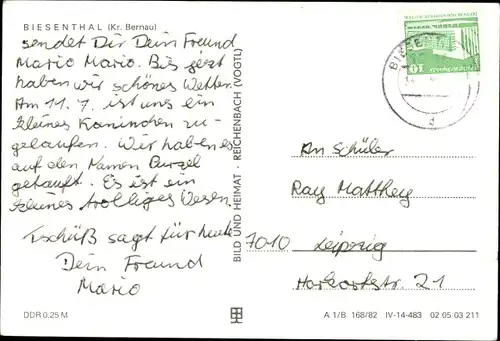 BIESENTHAL (Kr. Bernau)
sendet Dir Dein Freund
Mario Mario. Bis jetzt
haben wir schönes Wetter.
Am 11.7. ist uns ein
kleines Kaninchen zu-
gelaufen. Wir haben es
auf den Namen Purzel
getauft. Es ist ein
kleines trolliges Wesen.
Tschüß sagt für heute
Dein Freund
Mario
DDR 0,25 M
BILD UND HEIMAT · REICHENBACH (VOGTL)
10
An Schüler
Ray Matthey
7010 Leipzig
Harkortstr. 21
A 1/B 168/82 IV-14-483 02 05 03 211